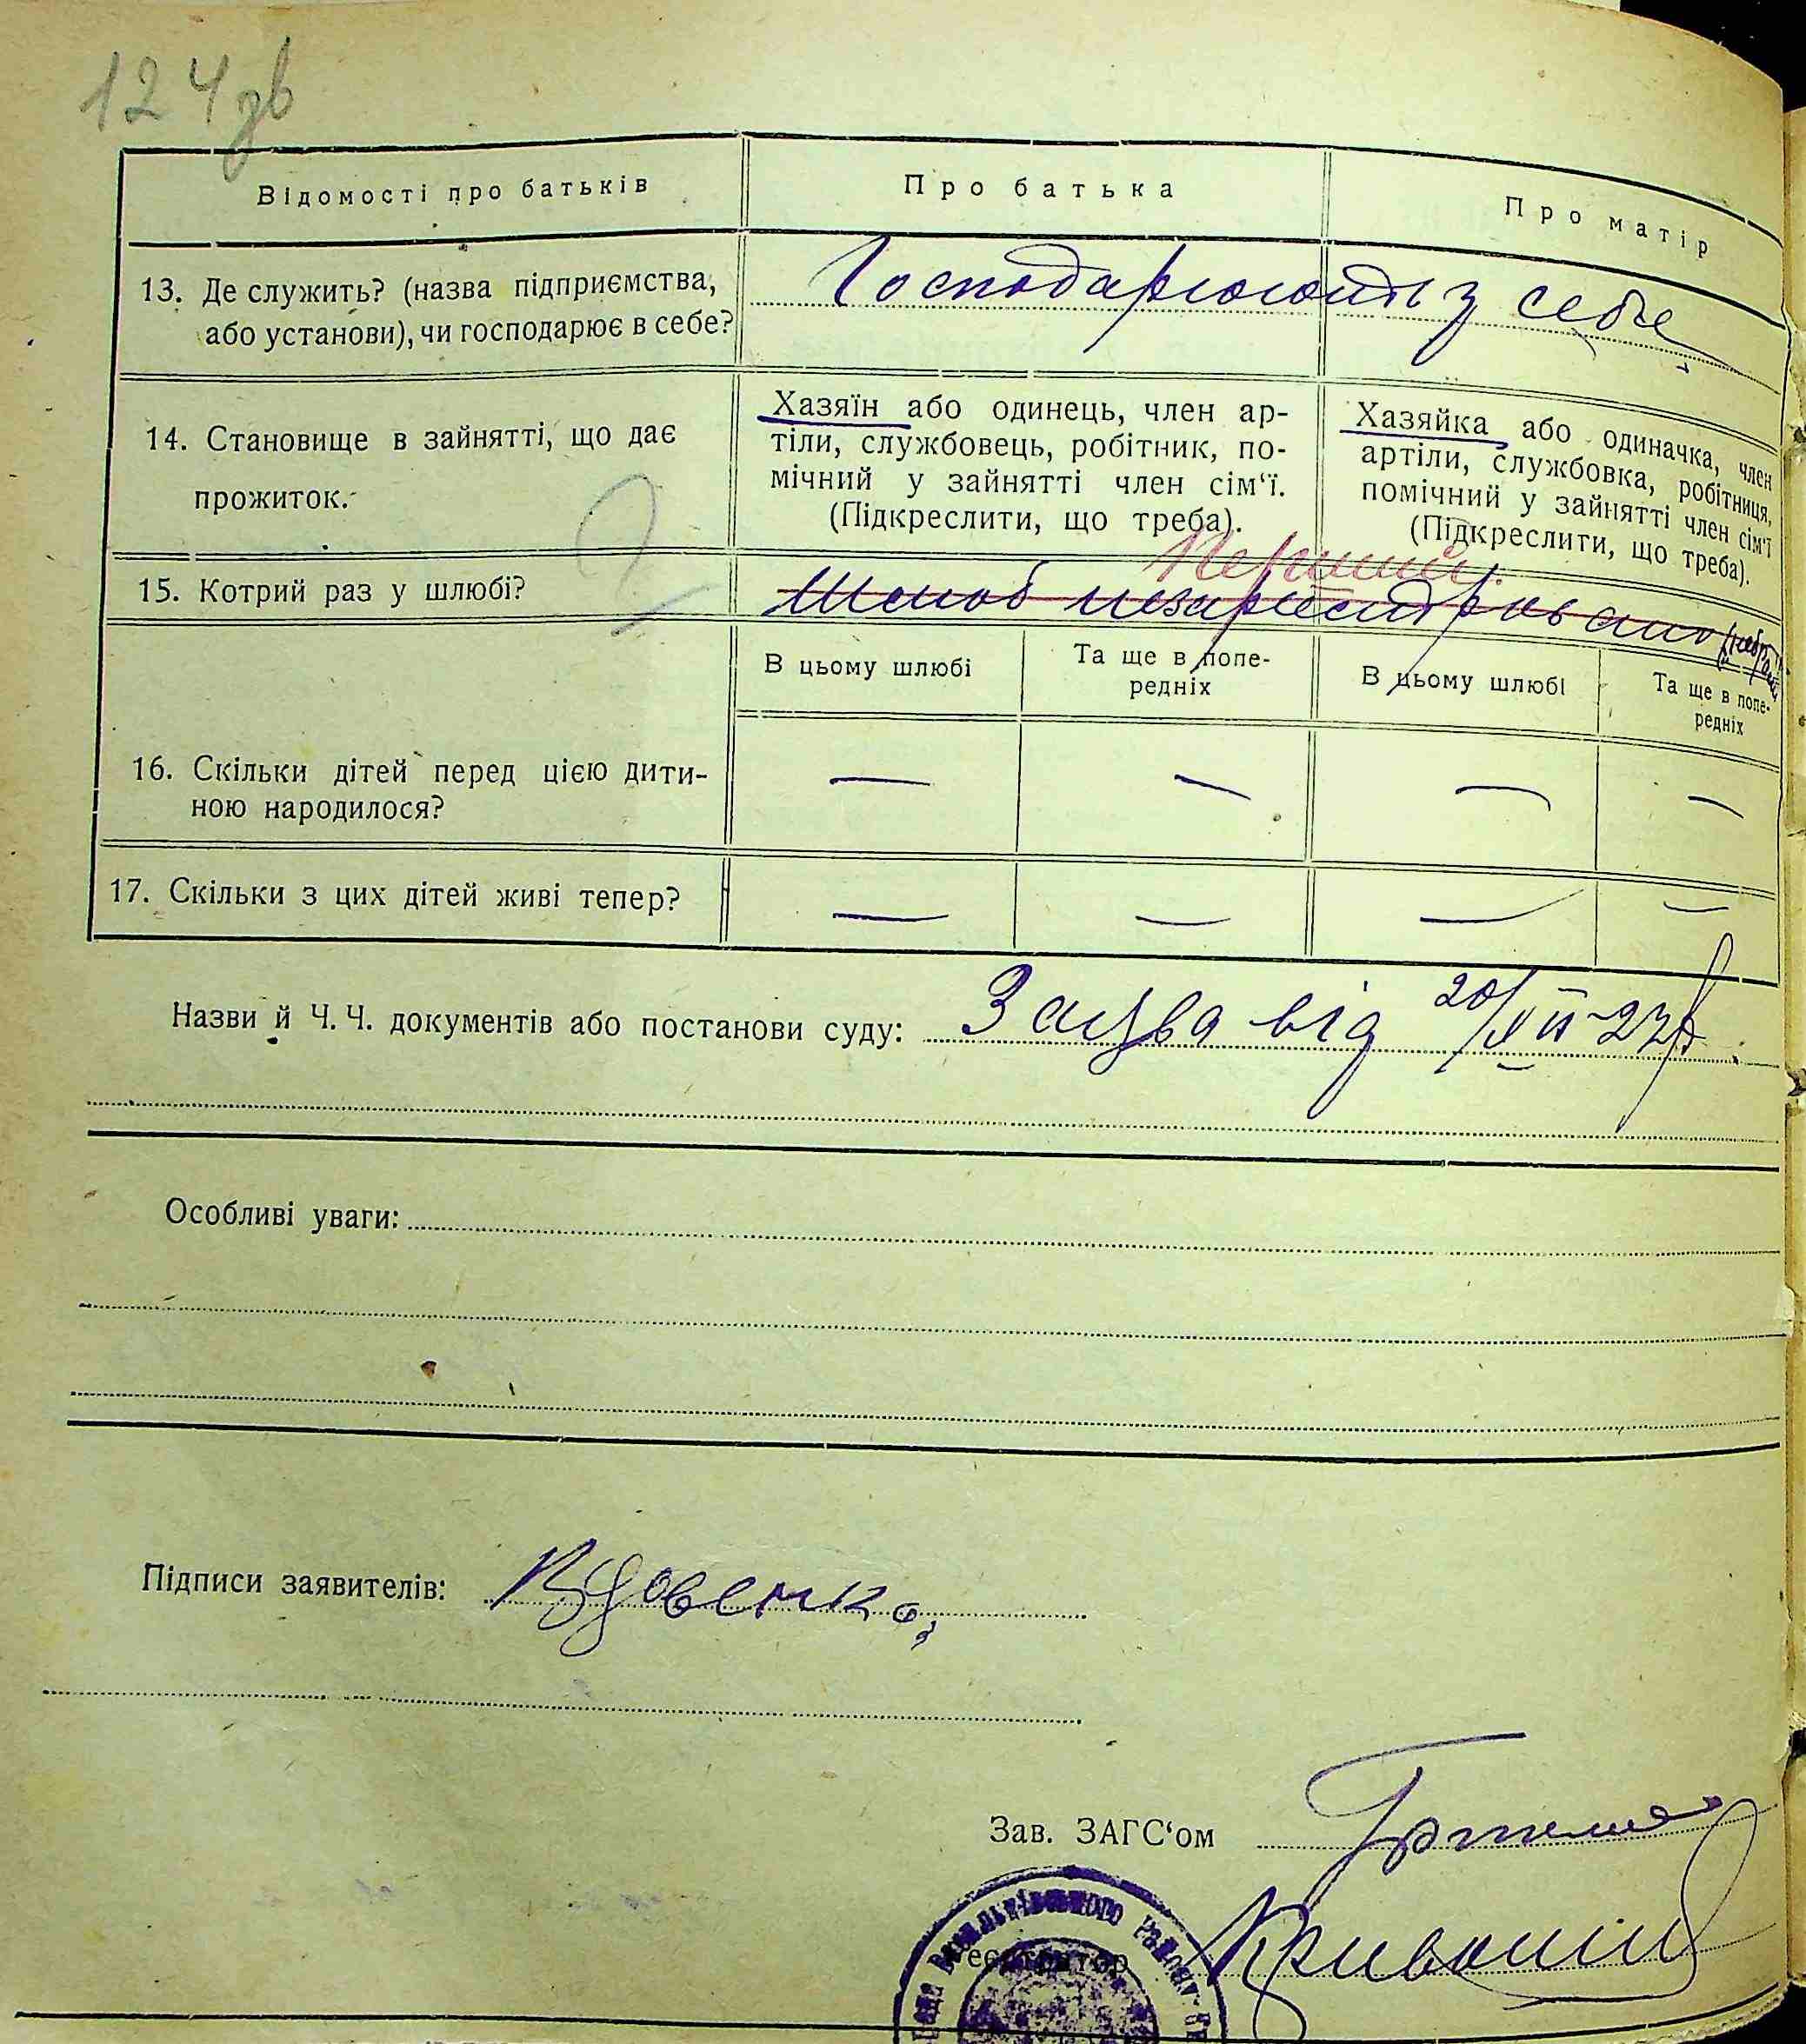 124зв
Відомості про батьків
Про батька
Про матір
13. Де служить? (назва підприємства,
або установи), чи господарює в себе?
Господарюють у себе
14. Становище в зайнятті, що дає
прожиток.
Хазяїн або одинець, член ар-
тіли, службовець, робітник, по-
мічний у зайнятті член сім‘ї.
(Підкреслити, що треба).
Хазяйка або одиначка, член
артіли, службовка, робітниця,
помічний у зайнятті член сім‘ї
(Підкреслити, що треба).
Перший.
15. Котрий раз у шлюбі?
Шлюб незарєєстровано
В цьому шлюбі
Та ще в попе-
редніх
В цьому шлюбі
Та ще в попе-
редніх
16. Скільки дітей перед цією дити-
ною народилося?
— — — —
17. Скільки з цих дітей живі тепер?
— — — —
Назви й Ч. Ч. документів або постанови суду: Заява від 20/XII-27р.
Особливі уваги:
Підписи заявителів: Вдовенко,
Зав. ЗАГС‘ом
Васильківського Району
еєстратор